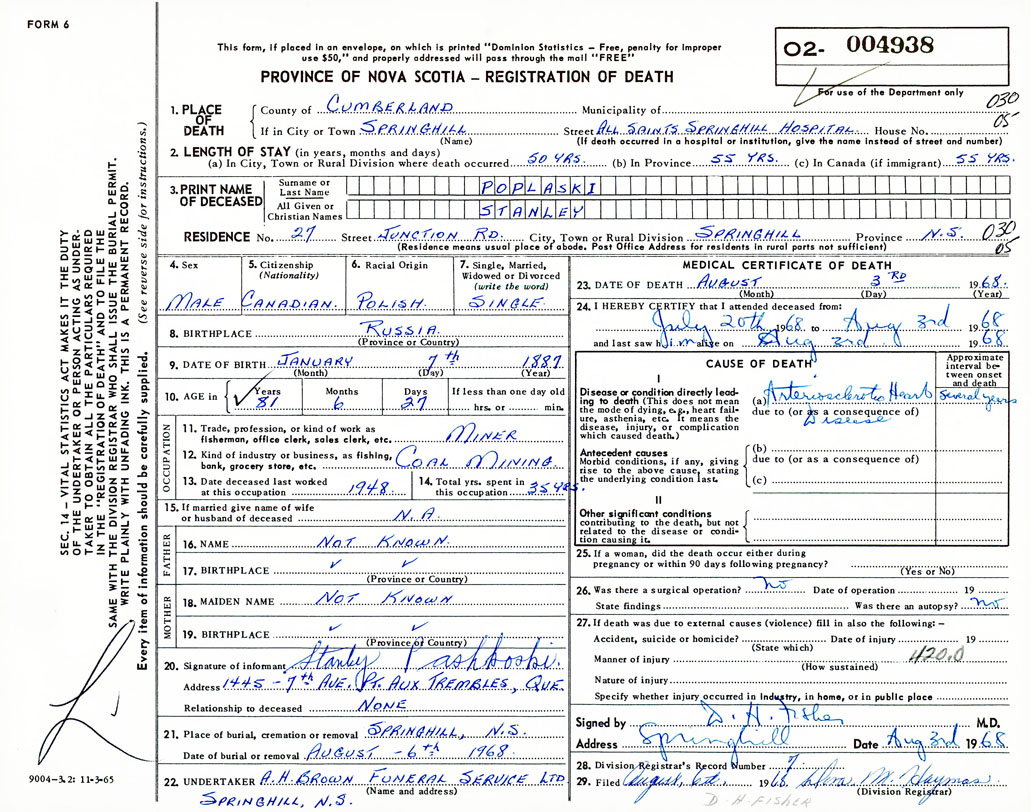 FORM 6
This form, if placed in an envelope, on which is printed "Dominion Statistics – Free, penalty for improper
use $50," and properly addressed will pass through the mail "FREE"
PROVINCE OF NOVA SCOTIA – REGISTRATION OF DEATH
O2- 004938
For use of the Department only
030
05
SEC. 14 – VITAL STATISTICS ACT MAKES IT THE DUTY
OF THE UNDERTAKER OR PERSON ACTING AS UNDER-
TAKER TO OBTAIN ALL THE PARTICULARS REQUIRED
IN THE "REGISTRATION OF DEATH" AND TO FILE THE
SAME WITH THE DIVISION REGISTRAR WHO SHALL ISSUE THE BURIAL PERMIT.
WRITE PLAINLY WITH UNFADING INK. THIS IS A PERMANENT RECORD.
Every item of information should be carefully supplied. (See reverse side for instructions.)
1. PLACE OF DEATH
County of CUMBERLAND Municipality of
If in City or Town SPRINGHILL Street ALL SAINTS SPRINGHILL HOSPITAL House No.
(Name) (If death occurred in a hospital or institution, give the name instead of street and number)
2. LENGTH OF STAY (in years, months and days)
(a) In City, Town or Rural Division where death occurred 50 YRS. (b) In Province 55 YRS. (c) In Canada (if immigrant) 55 YRS.
3. PRINT NAME OF DECEASED
Surname or Last Name POPLASKI
All Given or Christian Names STANLEY
RESIDENCE No. 27 Street JUNCTION RD. City, Town or Rural Division SPRINGHILL Province N.S. 030
(Residence means usual place of abode. Post Office Address for residents in rural parts not sufficient) 05
4. Sex
MALE
5. Citizenship
(Nationality)
CANADIAN.
6. Racial Origin
POLISH.
7. Single, Married,
Widowed or Divorced
(write the word)
SINGLE.
8. BIRTHPLACE RUSSIA.
(Province or Country)
9. DATE OF BIRTH JANUARY 7th 1887
(Month) (Day) (Year)
10. AGE in Years Months Days If less than one day old
81 6 27 hrs. or min.
OCCUPATION
11. Trade, profession, or kind of work as
fisherman, office clerk, sales clerk, etc. MINER
12. Kind of industry or business, as fishing,
bank, grocery store, etc. COAL MINING.
13. Date deceased last worked
at this occupation 1948
14. Total yrs. spent in
this occupation 35 YRS.
15. If married give name of wife
or husband of deceased N.A.
FATHER
16. NAME NOT KNOWN.
17. BIRTHPLACE ✓ ✓
(Province or Country)
MOTHER
18. MAIDEN NAME NOT KNOWN
19. BIRTHPLACE ✓ ✓
(Province or Country)
20. Signature of informant Stanley Pashkoski.
Address 1445 – 7th AVE. PT. AUX TREMBLES, QUE.
Relationship to deceased NONE
21. Place of burial, cremation or removal SPRINGHILL, N.S.
Date of burial or removal AUGUST – 6th 1968.
22. UNDERTAKER A.H. BROWN FUNERAL SERVICE LTD.
(Name and address)
SPRINGHILL, N.S.
9004–3.2: 11-3-65
MEDICAL CERTIFICATE OF DEATH
23. DATE OF DEATH AUGUST 3RD 1968.
(Month) (Day) (Year)
24. I HEREBY CERTIFY that I attended deceased from:
July 20th 1968 to Aug 3rd 1968
and last saw him alive on Aug 3rd 1968.
CAUSE OF DEATH
Approximate
interval be-
tween onset
and death
I
Disease or condition directly lead-
ing to death (This does not mean
the mode of dying, e.g., heart fail-
ure, asthenia, etc. It means the
disease, injury, or complication
which caused death.)
(a) Arteriosclerotic Heart Several years
due to (or as a consequence of)
Disease
Antecedent causes
Morbid conditions, if any, giving
rise to the above cause, stating
the underlying condition last.
(b)
due to (or as a consequence of)
(c)
II
Other significant conditions
contributing to the death, but not
related to the disease or condi-
tion causing it.
25. If a woman, did the death occur either during
pregnancy or within 90 days following pregnancy?
(Yes or No)
26. Was there a surgical operation? no Date of operation 19
State findings Was there an autopsy? no
27. If death was due to external causes (violence) fill in also the following: –
Accident, suicide or homicide? Date of injury 19
(State which)
Manner of injury 420.0
(How sustained)
Nature of injury
Specify whether injury occurred in Industry, in home, or in public place
Signed by D. H. Fisher M.D.
Address Springhill Date Aug 3rd 1968
28. Division Registrar's Record Number 7
29. Filed August 6th 1968 M. Haymas
(Division Registrar)
D H FISHER